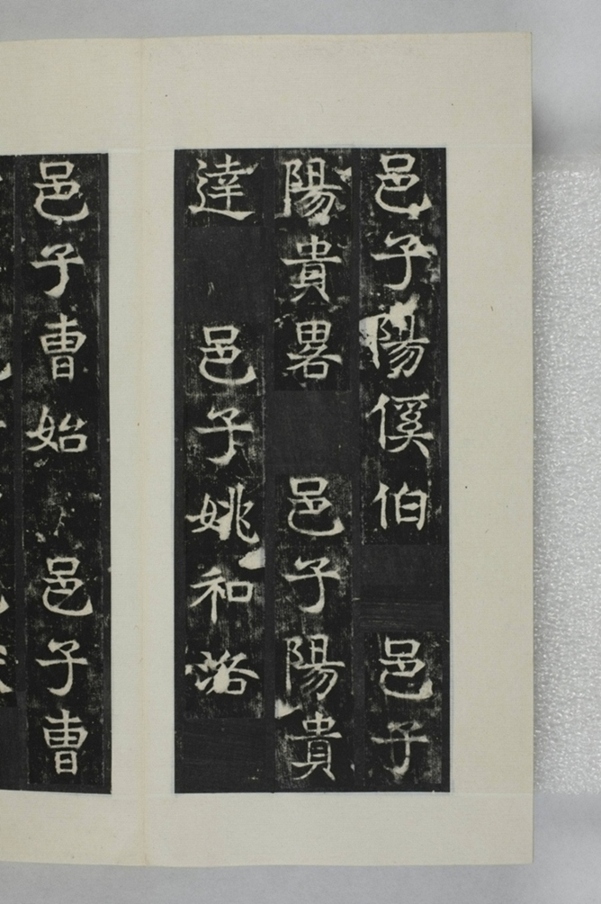 邑子陽傒伯 邑子
陽貴畧 邑子陽貴
達 邑子姚和洛
邑子曹始 邑子曹